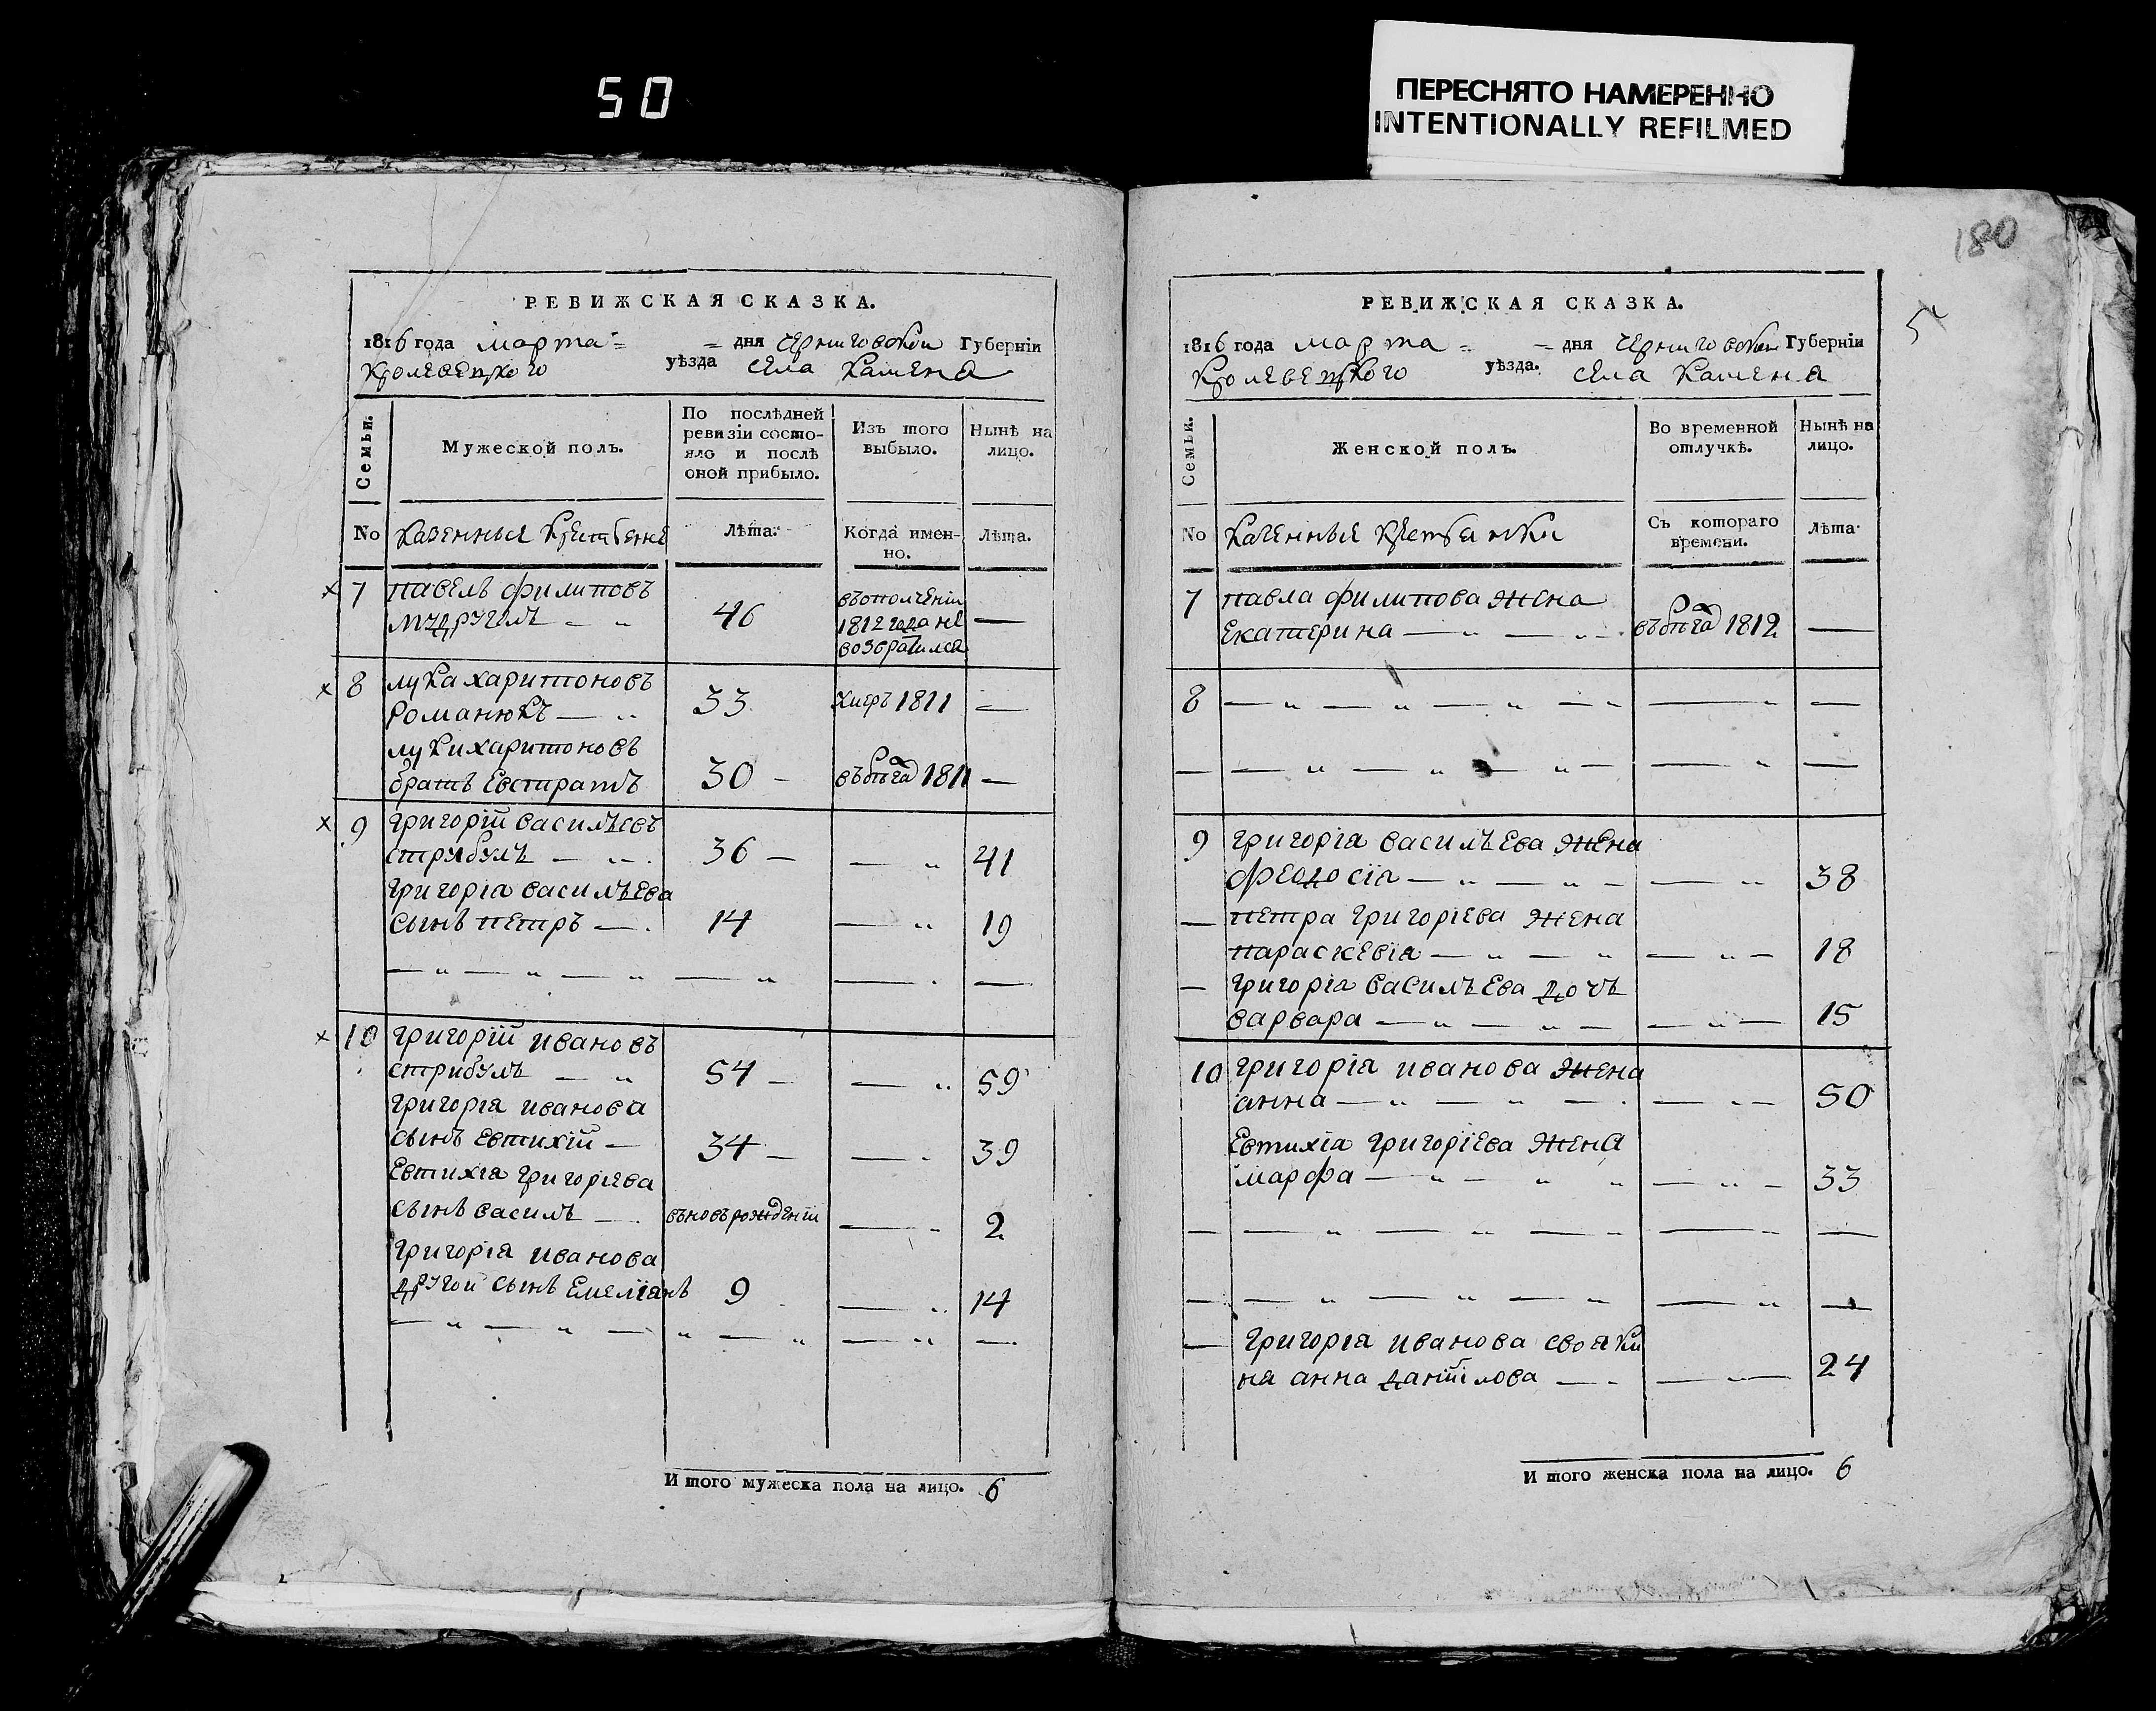 50
ПЕРЕСНЯТО НАМЕРЕННО
INTENTIONALLY REFILMED
РЕВИЖСКАЯ СКАЗКА.
1816 года марта = = дня черниговской Губерніи
Кролевецкого уѣзда села Каменя
Семьи.
Мужеской полъ.
По послѣдней
ревизіи состо-
яло и послѣ
оной прибыло.
Изъ того
выбыло.
Нынѣ на
лицо.
No
казенные
Лѣта.
Когда имен-
но.
Лѣта.
x 7 павелъ филиповъ
46
въополченіи
1812 года не
возвратился
—
x 8 лука харитоновъ
романюкъ — „
33
умръ 1811
—
луки харитоновъ
братъ Евстратъ
30 -
въ бѣгах 1811 —
x 9 григорій василъевъ
стрибулъ — „
36 — — „ 41
григоріа василъева
сынъ петръ — .
14 — „ 19
— „ — „ — „ — „ — . —
x 10 григорій ивановъ
стрибулъ — „
54 — — „ 59
григоріа иванова
сынъ евтихій —
34 — — „ 39
Евтихіа григоріева
сынъ василъ — .
въновърожденіи — „ 2
григоріа иванова
другой сынъ Емеліанъ
9 — „ 14
— „ — „ — „ — „ — „ —
И того мужеска пола на лицо. 6
180
5
РЕВИЖСКАЯ СКАЗКА.
1816 года марта = = дня черниговской Губерніи
Кролевецкого уѣзда. села Каменя
Семьи.
Женской полъ.
Во временной
отлучкѣ.
Нынѣ на
лицо.
No
казенные
Съ котораго
времени.
Лѣта
7 павла филипова жена
Екатерина — „ — „
въ бѣгах 1812 —
8 — „ — „ — „ — — „ —
— — „ — „ — „ — — „ —
9 григоріа василъева жена
феодосіа — „ — „ — — „ 38
— петра григоріева жена
параскевіа — „ — „ — „ — 18
— григоріа василъева дочъ
варвара — „ — „ — — „ — 15
10 григоріа иванова жена
анна — „ — „ — . — „ — 50
Евтихіа григоріева жена
марфа — „ — „ „ — „ — 33
— — „ — „ — „ — „ —
— — „ — „ — „ — „ —
— григоріа иванова своячи
на анна даніилова — „ — „ — 24
И того женска пола на лицо. 6